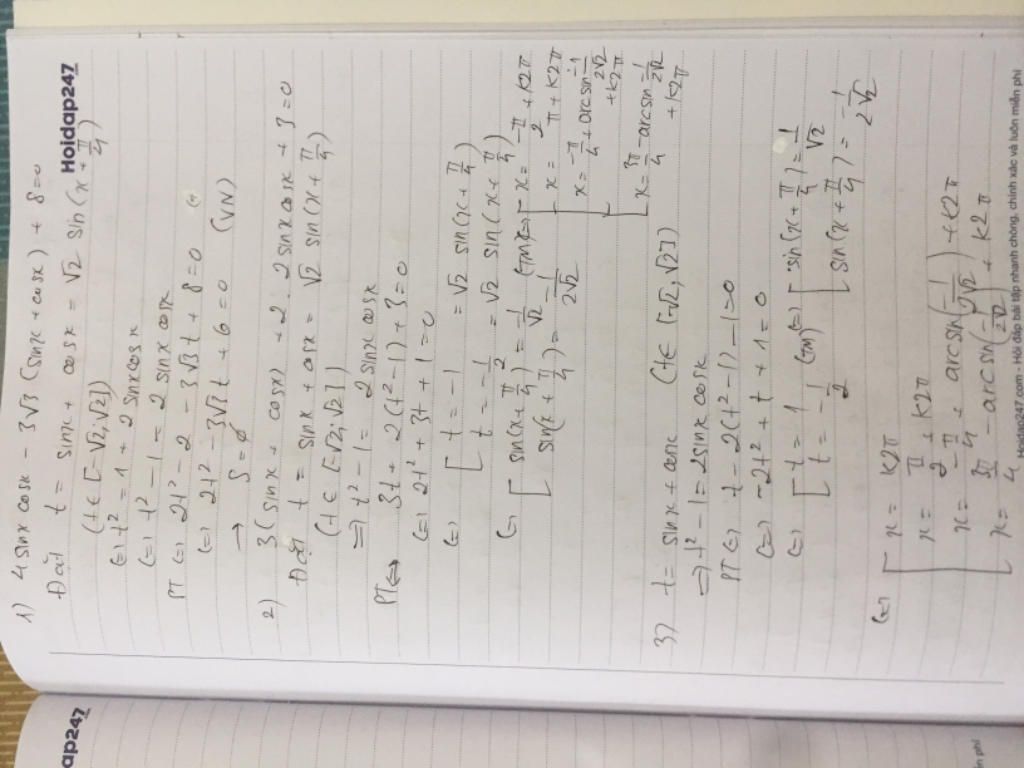 Hoidap247
1) 4 sinx cosx - 3√3 (sinx + cosx) + 8 = 0
Đặt t = sinx + cosx = √2 sin(x + π/4)
(t ∈ [-√2; √2])
(=) t² = 1 + 2 sinx cosx
(=) t² - 1 = 2 sinx cosx
PT (=) 2t² - 2 - 3√3 t + 8 = 0
(=) 2t² - 3√3 t + 6 = 0 (VN)
→ S = ∅
2) 3(sinx + cosx) + 2 . 2 sinx cosx + 3 = 0
Đặt t = sinx + cosx = √2 sin(x + π/4)
(t ∈ [-√2; √2])
=> t² - 1 = 2 sinx cosx
PT <=> 3t + 2(t² - 1) + 3 = 0
(=) 2t² + 3t + 1 = 0
(=) [ t = -1 = √2 sin(x + π/4)
t = -1/2 = √2 sin(x + π/4)
(=) [ sin(x + π/4) = -1/√2 (TM) (=) [ x = -π/2 + k2π
sin(x + π/4) = -1/2√2
x = π + k2π
x = -π/4 + arcsin -1/2√2 + k2π
x = 3π/4 - arcsin -1/2√2 + k2π
3) t = sinx + cosx (t ∈ [-√2, √2])
=> t² - 1 = 2 sinx cosx
PT (=) t - 2(t² - 1) - 1 = 0
(=) -2t² + t + 1 = 0
(=) [ t = 1 (TM) (=) [ sin(x + π/4) = 1/√2
t = -1/2 sin(x + π/4) = -1/2√2
(=) [ x = k2π
x = π/2 + k2π
x = -π/4 + arcsin(-1/2√2) + k2π
x = 3π/4 - arcsin(-1/2√2) + k2π
Hoidap247.com - Hỏi đáp bài tập nhanh chóng, chính xác và luôn miễn phí
ap247
ễn phí